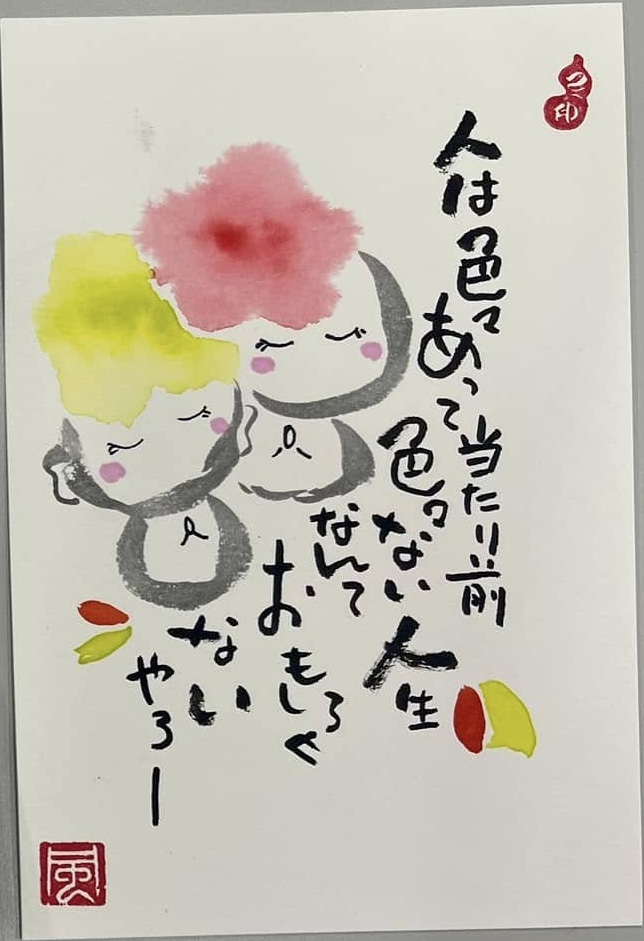 人は色々
あって当たり前
色々ない人生
なんて
おもしろく
ない
やろー
風